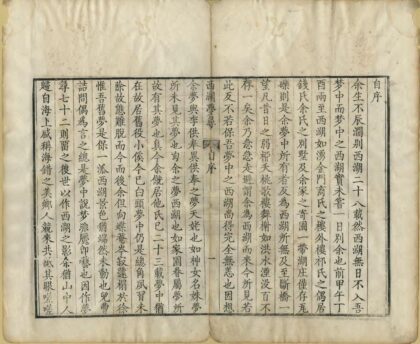 自序
余生不辰濶別西湖二十八載然西湖無日不入吾
夢中而夢中之西湖實未嘗一日別余也前甲午丁
酉兩至西湖如湧金門商氏之樓外樓祁氏之偶居
錢氏余氏之別墅及余家之寄園一帶湖庄僅存瓦
礫則是余夢中所有者反為西湖所無及至斷橋一
望凡昔日之弱柳夭桃歌樓舞榭如洪水湮沒百不
存一矣余乃急急走避謂余為西湖而來今所見若
此反不若保吾夢中之西湖尚得完全無恙也因想
西湖夢尋 自序 一
余夢與李供奉異供奉之夢天姥也如神女名姝夢
所未見其夢也幻余之夢西湖也如家園眷屬夢所
故有其夢也真今余僦居他氏已二十三載夢中猶
在故居舊役小傒今已白頭夢中仍是總角夙習未
除故態難脫而今而後余但向蝶菴岑寂蘧榻於徐
惟吾舊夢是保一派西湖景色猶端然未動也兒曹
詰問偶為言之總是夢中說夢非魘即囈也因作夢
尋七十二則留之後世以作西湖之影余猶山中人
歸自海上盛稱海錯之美鄉人競來共舐其眼嗟嗟